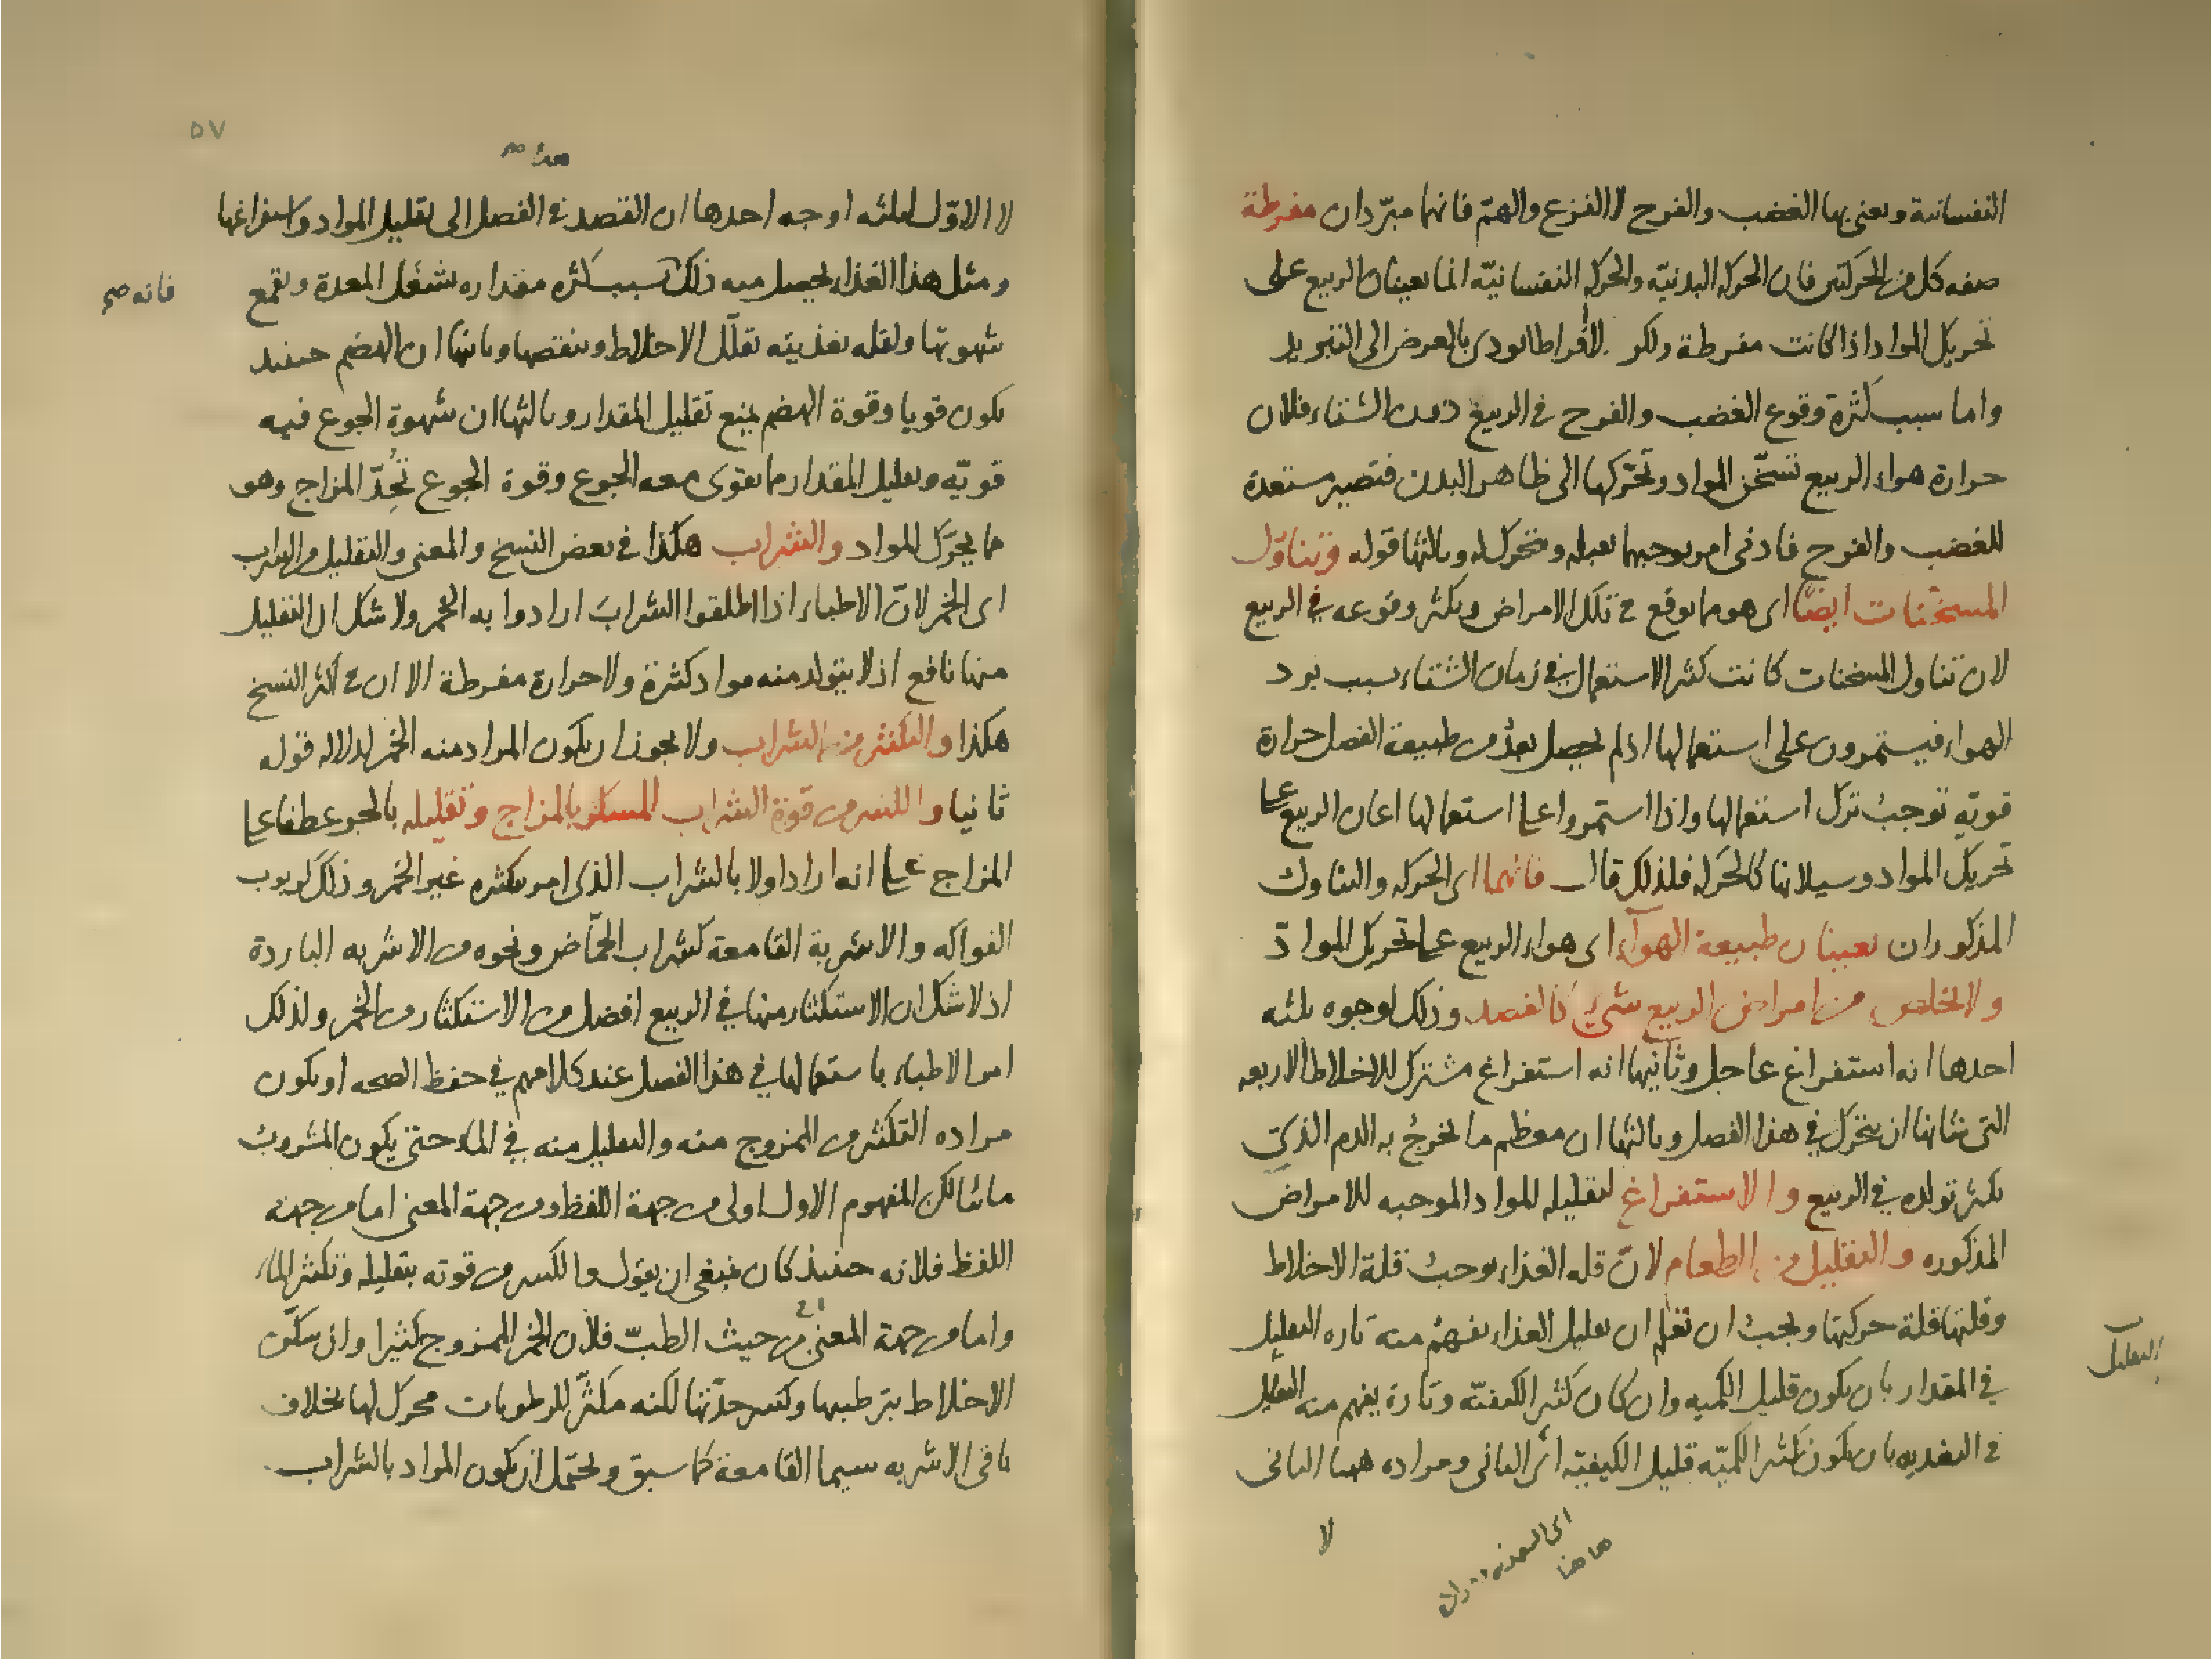 النفسانية ويعنى بها الغضب والفرح لا الفزع والهمّ فانهما مبرّدان مفرطة
صفه كل من الحركتين فان الحركه البدنيّه والحركه النفسانيّه انما يعينان الربيع على
تحريك المواد اذا كانت مفرطة ولكن الافراط يودى بالعرض الى التبريد
واما سبب كثرة وقوع الغضب والفرح فى الربيع دون الشتاء فلان
حرارة هواء الربيع تسخّن المواد وتحرّكها الى ظاهر البدن فتصير مستعدة
للغضب والفرح فادنى امر يوجبهما تقبله وتتحرك له وثالثها قوله وتناوُل
المسخّنات ايضًا اى هو مما يوقع فى تلك الامراض ويكثر وقوعه فى الربيع
لان تناول المسخنات كانت كثير الاستعمال فى زمان الشتاء بسبب برد
الهواء فيستمرون على استعمالها اذ لم يحصل بعدُ من طبيعة الفصل حرارة
قويّه توجبُ ترك استعمالها واذا استمروا على استعمالها اعان الربيع على
تحريك المواد وسيلانها كالحركه فلذلك قال فانهما اى الحركه والتناول
المذكوران يعينان طبيعة الهوآء اى هواء الربيع على تحريك المواد
ولا مخلص من امراض الربيع شىء كالفصد وذلك لوجوه ثلثه
احدها انه استفراغ عاجل وثانيها انه استفراغ مشترك للاخلاط الاربعه
التى شانها ان تتحرك فى هذا الفصل وثالثها ان معظم ما يخرجُ به الدم الذى
يكثر تولده فى الربيع والاستفراغ لتقليله للمواد الموجبه للامراض
المذكوره والتقليل من الطعام لانّ قله الغذاء يوجبُ قلة الاخلاط
وقلتها قلة حركتها ويجبُ ان تعلم ان تقليل الغذاء يفهمُ منه تاره التقليل
فى المقدار بان يكون قليل الكميه وان كان كثير الكيفيّه وتارة يفهم منه التقليل
فى التغذيه بان يكون كثير الكميّه قليل الكيفيّه اى الثانى ومراده ههنا الثانى
التقليل
اى التغذيه
هاهنا
لا
٥٧
لا الاوّل لثلثه اوجه احدها ان القصد فى الفصل الى تقليل المواد واستفراغها
ومثل هذا الغذاء يحصل منه ذلك بسبب كثره مقداره يشغل المعدة ويقمع
فانه صح
شهوتها ولقله تغذيته تقلّل الاخلاط وينقصها وثانيها ان الهضم حينئذ
يكون قويا وقوة الهضم يمنع تقليل المقدار وثالثها ان شهوة الجوع فيه
قويّه وتقليل المقدار مما يقوى معه الجوع وقوة الجوع تُحِدّ المزاج وهو
مما يحرّك المواد والشراب هكذا فى بعض النسخ والمعنى والتقليل من الشراب
اى الخمر لانّ الاطباء اذا اطلقوا الشرابَ ارادوا به الخمر ولا شك ان التقليل
منها نافع اذ لا يتولد منه مواد كثيرة ولا حرارة مفرطة الا ان فى اكثر النسخ
هكذا والتكثير من الشراب ولا يجوز ان يكون المراد منه الخمر لدلاله قوله
ثانيا والكسر من قوة الشراب المسكر بالمزاج وتقليله بالجر عطفا على
المزاج على انه اراد اولا بالشراب الذى امر بتكثيره غير الخمر وذلك كربوب
الفواكه والاشربة القامعة كشراب الحمّاض ونحوه من الاشربه الباردة
اذ لا شك ان الاستكثار منها فى الربيع افضل من الاستكثار من الخمر ولذلك
امر الاطباء باستعمالها فى هذا الفصل عند كلامهم فى حفظ الصحه او يكون
مراده التكثير من الممزوج منه والتقليل منه فى الماء حتى يكون المشروبُ
مائيا لكن المفهوم الاول اولى من جهة اللفظ ومن جهة المعنى اما من جهة
اللفظ فلانه حينئذ كان ينبغى ان يقول والكسر من قوته بتقليله وتكثير الماء
واما من جهة المعنى من حيث الطبّ فلان الخمر الممزوج كثيرا وان سكّن
الاخلاط بترطيبها وكسر حدّتها لكنه مكثّر للرطوبات محرك لها بخلاف
باقى الاشربه سيما القامعة كما سبق ويحتمل ان يكون المراد بالشراب